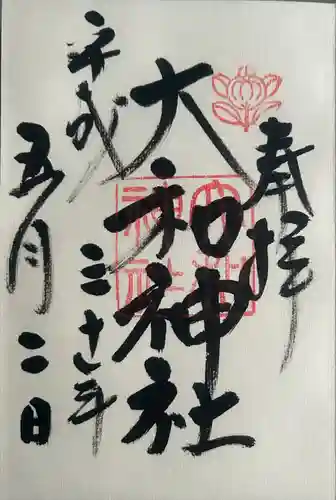 奉拝
大和神社
平成三十年
五月二日
大和
神社